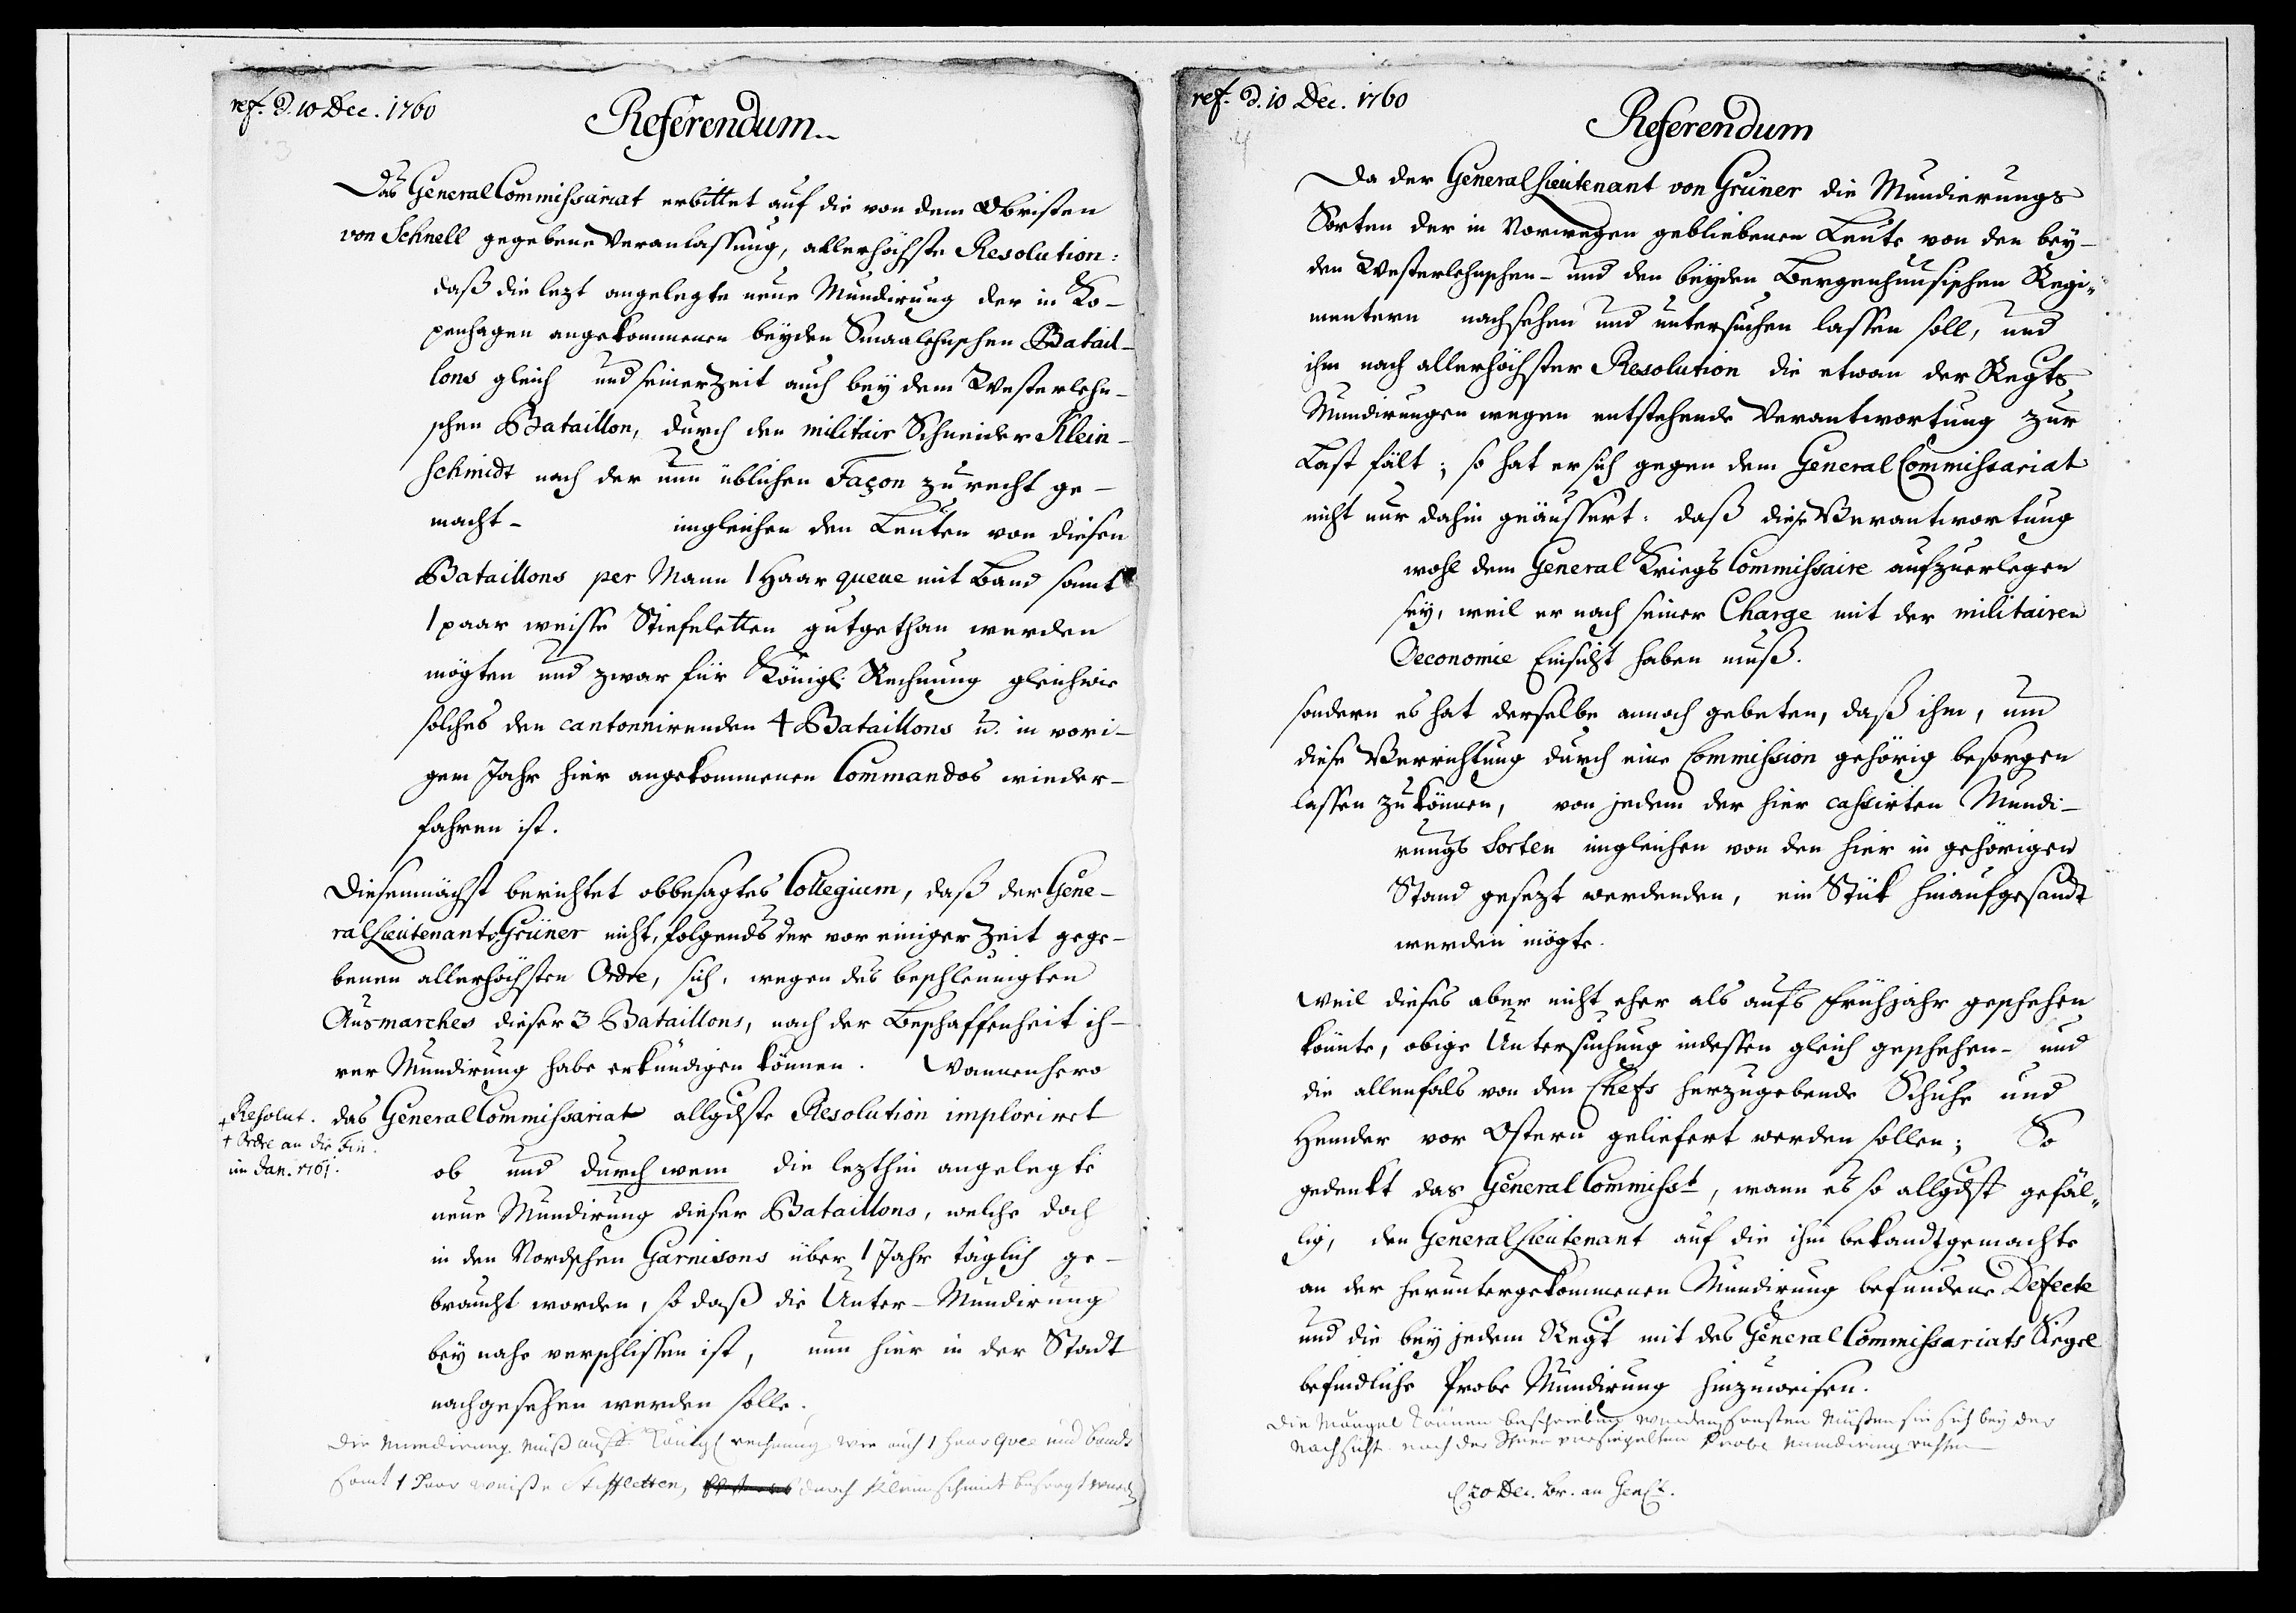 ref. d. 10 Dec. 1760
3
Referendum
Das GeneralCommissariat erbittet auf die von dem Obristen
von Schnell gegebene Veranlassung, allerhöchste Resolution:
daß die lezt angelegte neue Mundirung der in Ko-
penhagen angekommenen beyden Smaalehnschen Batail-
lons gleich und seiner Zeit auch bey dem Westerlehn-
schen Bataillon, durch den militair Schneider Klein-
schmidt nach der nun üblichen Façon zurecht ge-
macht- imgleichen den Leuten von diesen
Bataillons per Mann 1 Haar queue mit Band samt
1 paar weisse Stiefeletten gutgethan werden
mögten und zwar für Königl. Rechnung gleichwie
solches den cantonnirenden 4 Bataillons u. in vori-
gem Jahr hier angekommenen Commandos wieder-
fahren ist.
Diesemnächst berichtet obbesagtes Collegium, daß der Gene-
ralLieutenant v. Grüner nicht, folgends der vor einiger Zeit gege-
benen allerhöchsten Ordre, sich, wegen des beschleunigten
Ausmarches dieser 3 Bataillons, nach der Beschaffenheit ih-
rer Mundirung habe erkundigen können. Wannenhero
das GeneralCommissariat allgdste Resolution imploriret
Resolut.
† Ordre an die Fin.
im Jan. 1761.
ob und durch wem die lezthin angelegte
neue Mundirung dieser Bataillons, welche doch
in den Nordschen Garnisons über 1 Jahr täglich ge-
braucht worden, so daß die Unter-Mundirung
bey nahe verschlissen ist, nun hier in der Stadt
nachgesehen werden solle.
Die Mundirung muß auf Königl rechnung wie auch 1 Haar Quee und Bande
samt 1 Paar weisse Stiffletten, durch Kleinschmit besorgt werden
ref. d. 10 Dec. 1760
4
Referendum
Da der GeneralLieutenant von Grüner die Mundierungs
Sorten der in Norwegen gebliebenen Leute von den bey-
den Westerlehnschen- und den beyden Bergenhuusischen Regi-
mentern nachsehen und untersuchen lassen soll, und
ihm nach allerhöchster Resolution die etwan der Regts
Mundirungen wegen entstehende Verantwortung zur
Last fält; so hat er sich gegen dem GeneralCommissariat
nicht nur dahin geäussert: daß diese Verantwortung
wohl dem General KriegsCommissaire aufzuerlegen
sey, weil er nach seiner Charge mit der militairen
Oeconomie Einsicht haben muß.
sondern es hat derselbe annoch gebeten, daß ihm, um
diese Verrichtung durch eine Commission gehörig besorgen
lassen zu können, von jedem der hier cassirten Mundi-
rungs Sorten imgleichen von den hier in gehörigen
Stand gesezt werdenden, ein Stük hinaufgesandt
werden mögte.
Weil dieses aber nicht eher als aufs Frühjahr geschehen
könnte, obige Untersuchung indessen gleich geschehen- und
die allenfals von den Chefs herzugebende Schuhe und
Hemder vor Ostern geliefert werden sollen; So
gedenkt das GeneralCommisst, wann es so allgdst gefäl-
lig, den GeneralLieutenant auf die ihm bekandtgemachte
an der heruntergekommenen Mundirung befundene Defecte
und die bey jedem Regt mit des GeneralCommissariats Siegel
befindliche Probe Mundirung hinzuweisen.
Die Mängel können beschrieben werden, sonsten müsten sie sich bey der
Nachsicht nach der versiegelten Probe Mundirung richten
20 Dec. Br. an